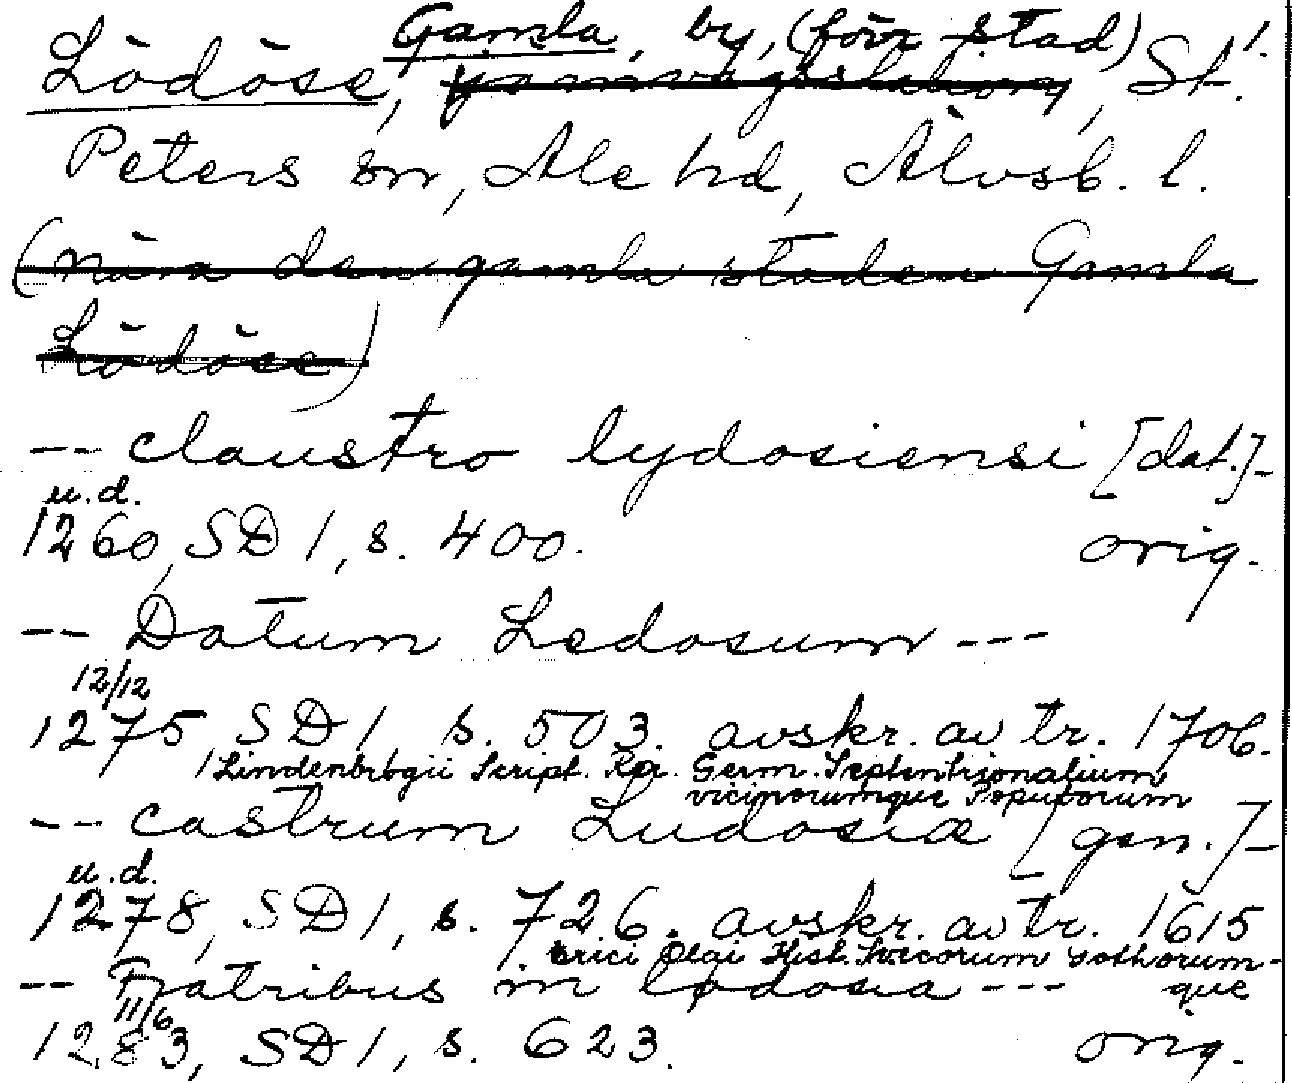 Gamla, by, (förr stad) 1.
Lödöse, järnvägsstation, St.
Peters sn, Ale hd, Älvsb. l.
(nära den gamla staden Gamla
Lödöse)
-- claustro lydosiensi [dat.]-
u.d.
1260, SD 1, s. 400. orig.
-- Datum Ledosum ---
12/12
1275 SD 1 s. 503. avskr. av tr. 1706.
/Lindenbrogii Script. Rer. Germ. Septentrionalium
vicinorumque Populorum
-- castrum Ludosiæ [gen.]-
u.d.
1278, SD 1, s. 726. avskr. av tr. 1615
Erici Olai Hist. Svecorum Gothorum-
-- Fratribus in lødosia --- que
11/6
1283, SD 1, s. 623. orig.